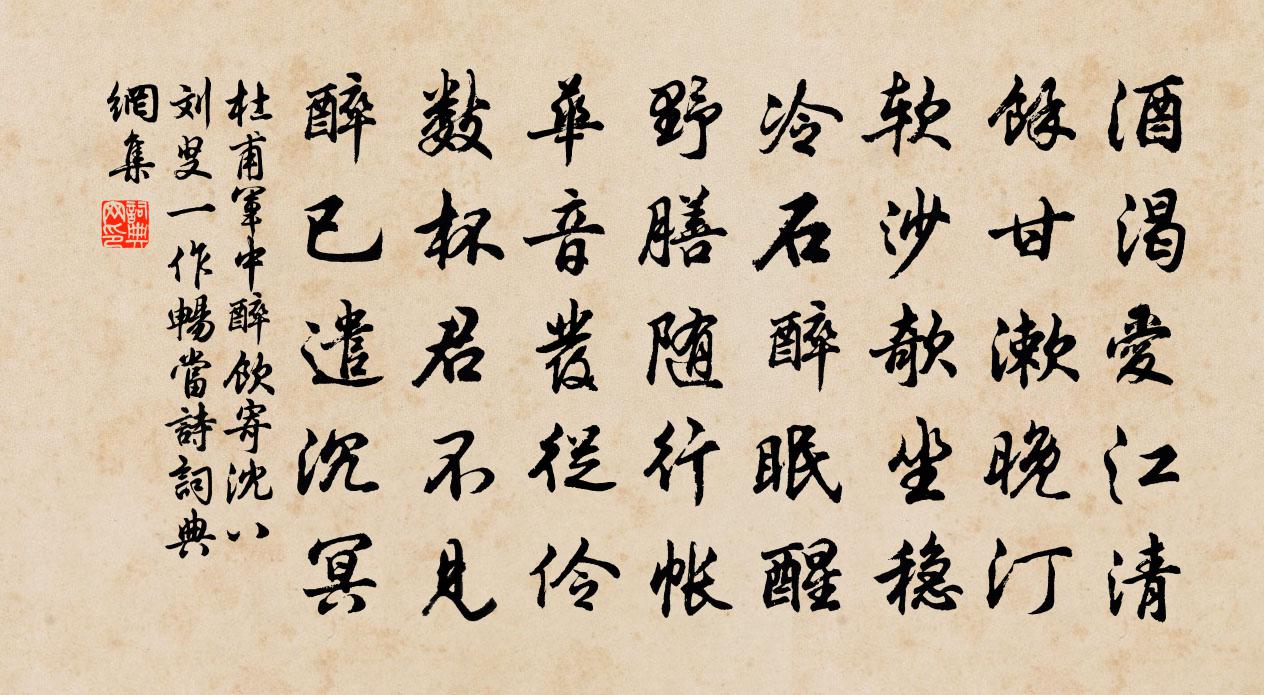 酒渴愛江清
餘甘漱晚汀
软沙欹坐稳
冷石醉眠醒
野膳随行帐
華音發從伶
数杯君不見
醉已遣沉冥
杜甫軍中醉飲寄沈八
刘叟一作暢當詩詞典
網集
詞典網印